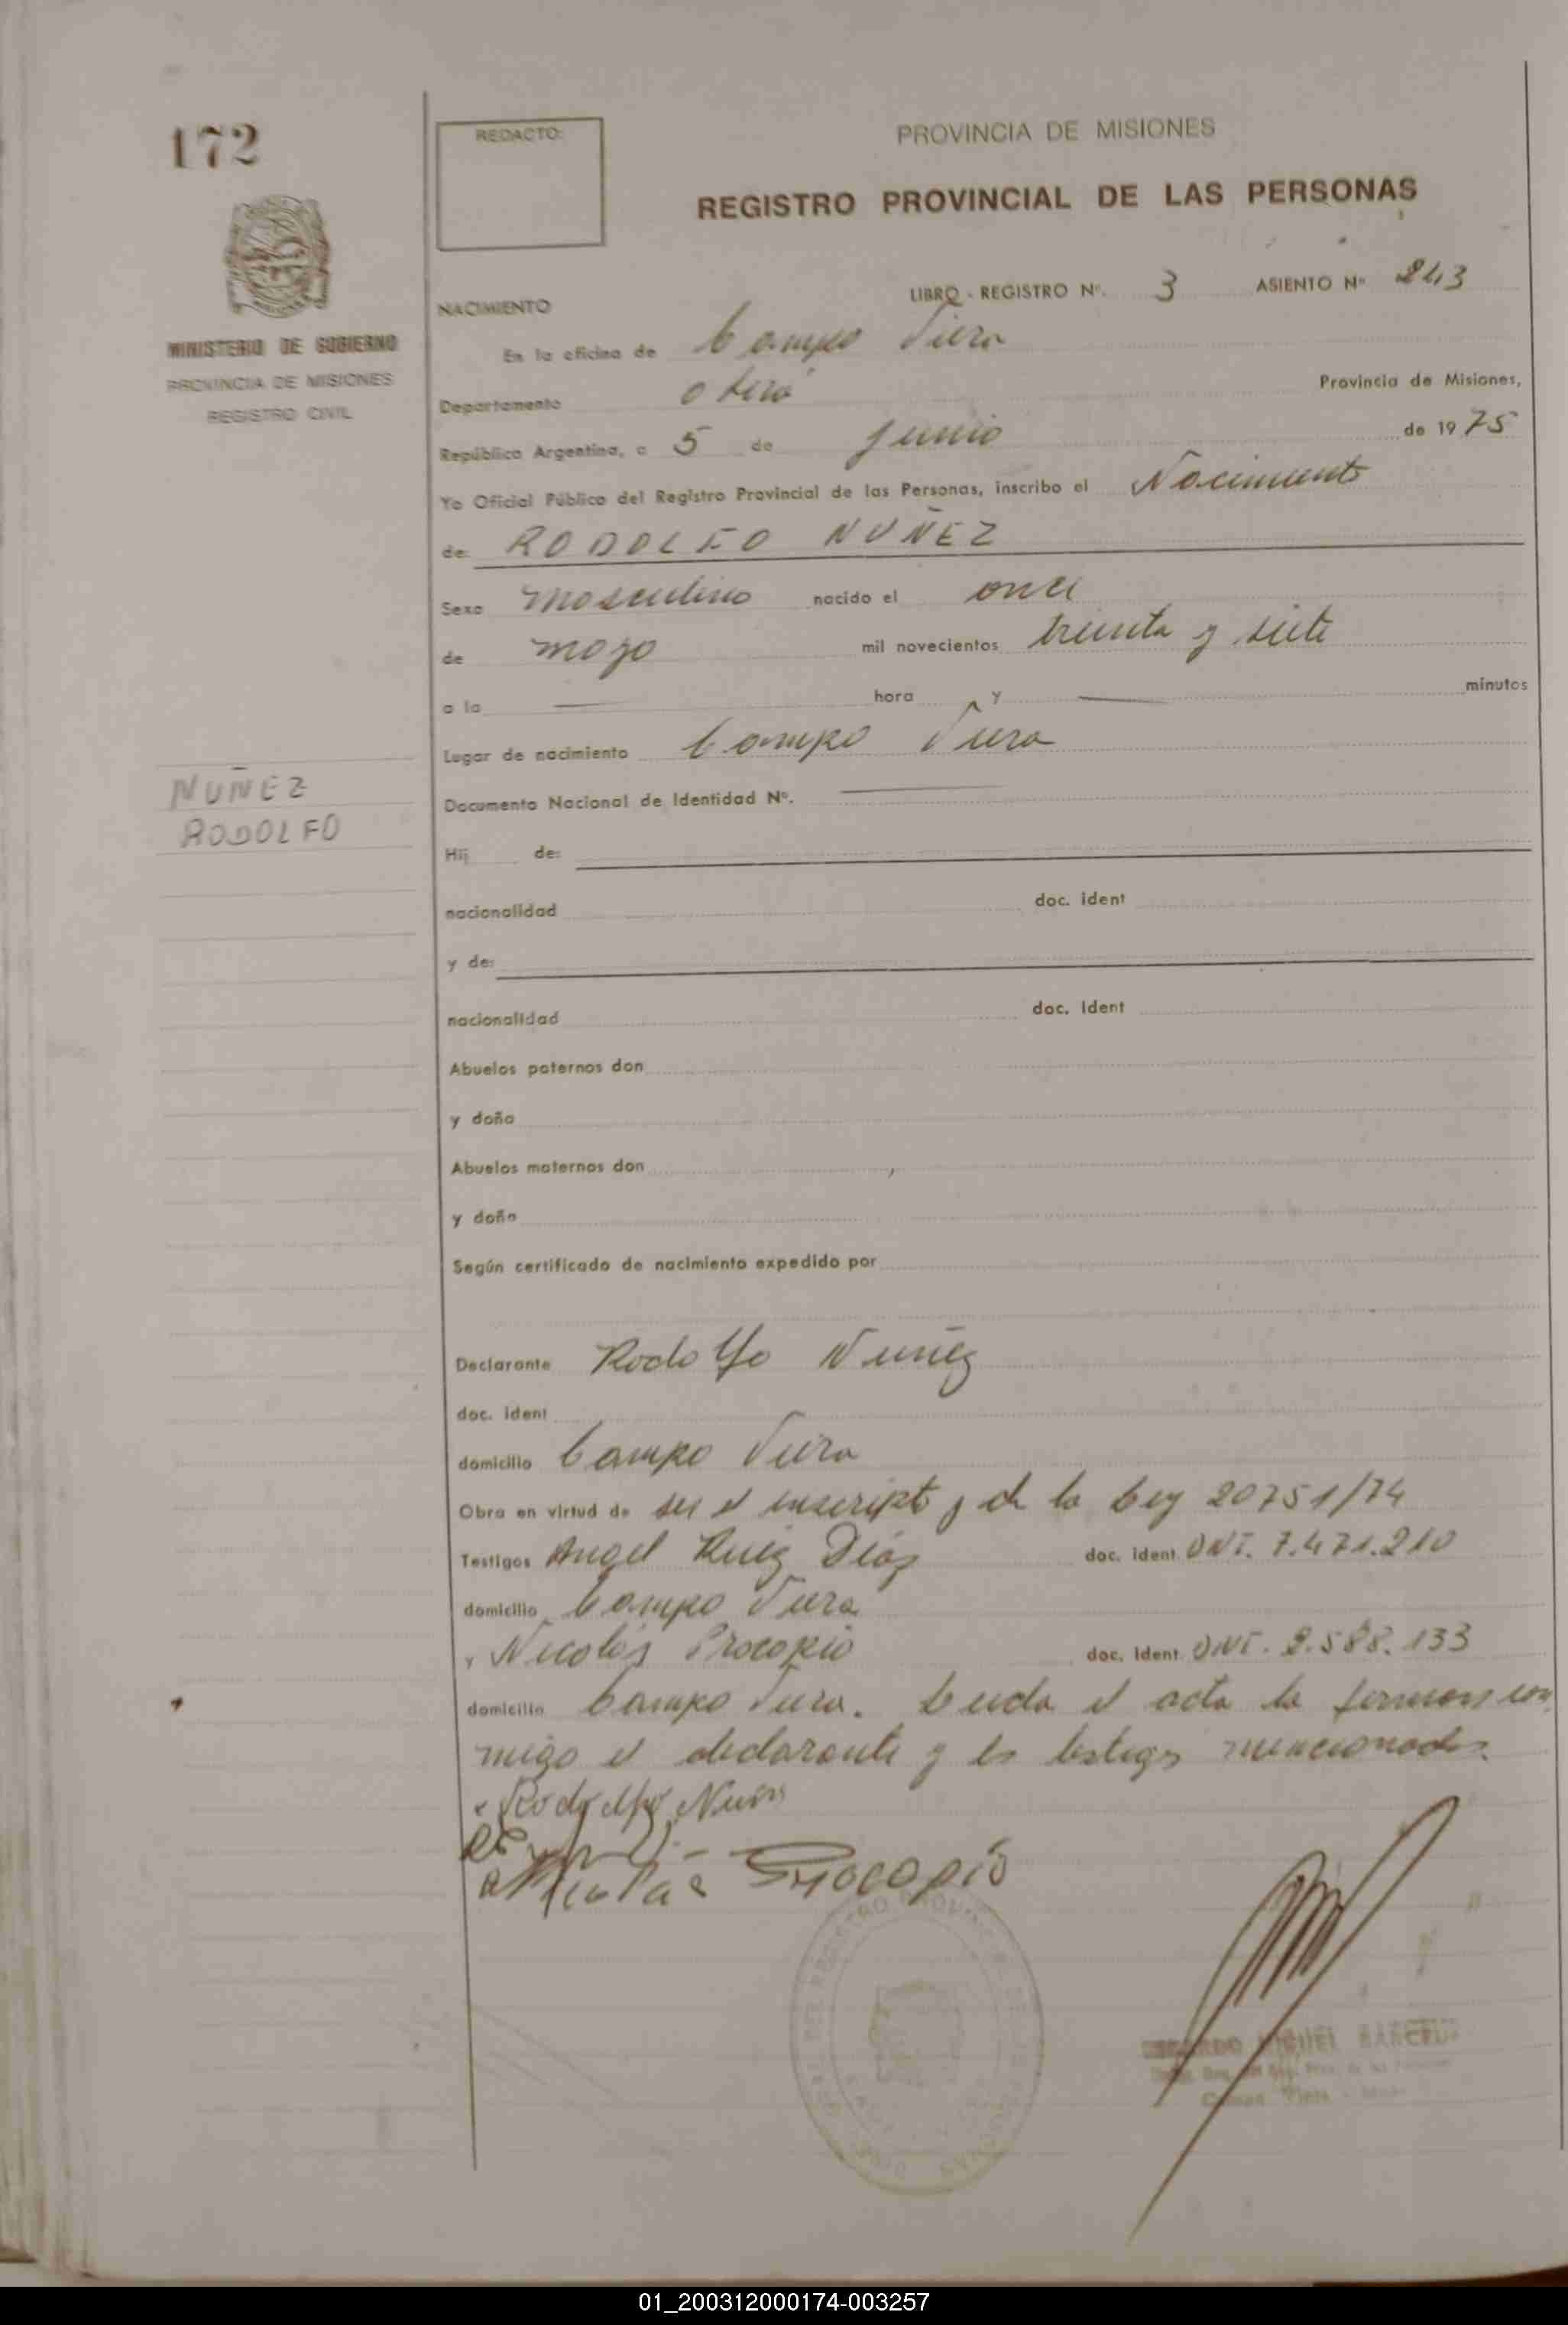 172
REDACTO:
PROVINCIA DE MISIONES
REGISTRO PROVINCIAL DE LAS PERSONAS
MINISTERIO DE GOBIERNO
PROVINCIA DE MISIONES
REGISTRO CIVIL
NACIMIENTO LIBRO - REGISTRO Nº. 3 ASIENTO Nº 243
En la oficina de Campo Viera
Departamento Provincia de Misiones,
República Argentina, a 5 de junio de 1975
Yo Oficial Público del Registro Provincial de las Personas, inscribo el Nacimiento
de: RODOLFO NUÑEZ
Sexo masculino nacido el once
de mayo mil novecientos treinta y siete
a la hora y minutos
Lugar de nacimiento Campo Viera
NUÑEZ
RODOLFO
Documento Nacional de Identidad Nº.
Hij de:
nacionalidad doc. ident
y de:
nacionalidad doc. ident
Abuelos paternos don
y doña
Abuelos maternos don
y doña
Según certificado de nacimiento expedido por
Declarante Rodolfo Nuñez
doc. ident
domicilio Campo Viera
Obra en virtud de ser el inscripto y de la Ley 20751/74
Testigos Angel Ruiz Diáz doc. ident DNI. 7.471.210
domicilio Campo Viera
y Nicolás Procopio doc. ident DNI. 8.588.133
domicilio Campo Viera. Leida el acta la firman con
migo el declarante y los testigos mencionados.
Rodolfo Nuñes
Nicolas Procopio
MIGUEL
Campo Viera
01_200312000174-003257